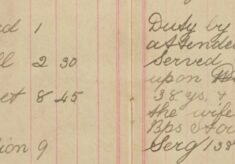 d 1 Duty by
ll 2 30 attende
served
upon
et 8 45 38 yrs. +
the wife
Bps
ion 9 Serg 138